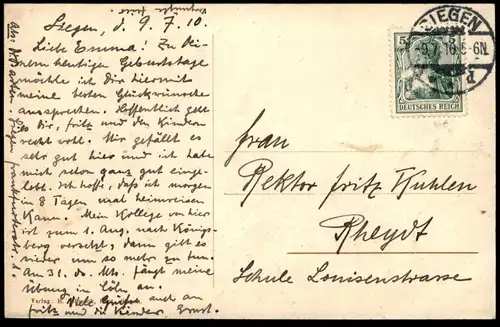 Siegen, d. 9.7.10.
Liebe Emma! Zu Dei-
nem heutigen Geburtstage
möchte ich Dir hiermit
meine besten Glückwünsche
aussprechen. Hoffentlich geht
es Dir, Fritz und den Kindern
recht wohl. Mir gefällt es
sehr gut hier und ich habe
mich schon ganz gut einge-
lebt. Ich hoffe, daß ich morgen
in 8 Tagen mal heimreisen
kann. Mein Kollege von hier
ist zum 1. Aug. nach Königs-
berg versetzt; dann gibt es
wieder um so mehr zu tun.
Am 31. ds. Mts. fängt meine
Übung in Cöln an.
Viele Grüße auch an
Fritz und die Kinder. Ernst.
Abs:
Siegen Frankfurterstr.
Verlag:
SIEGEN
9.7.10.6-6N.
5 5
DEUTSCHES REICH
Frau
Rektor Fritz Kuhlen
Rheydt
Schule Louisenstrasse